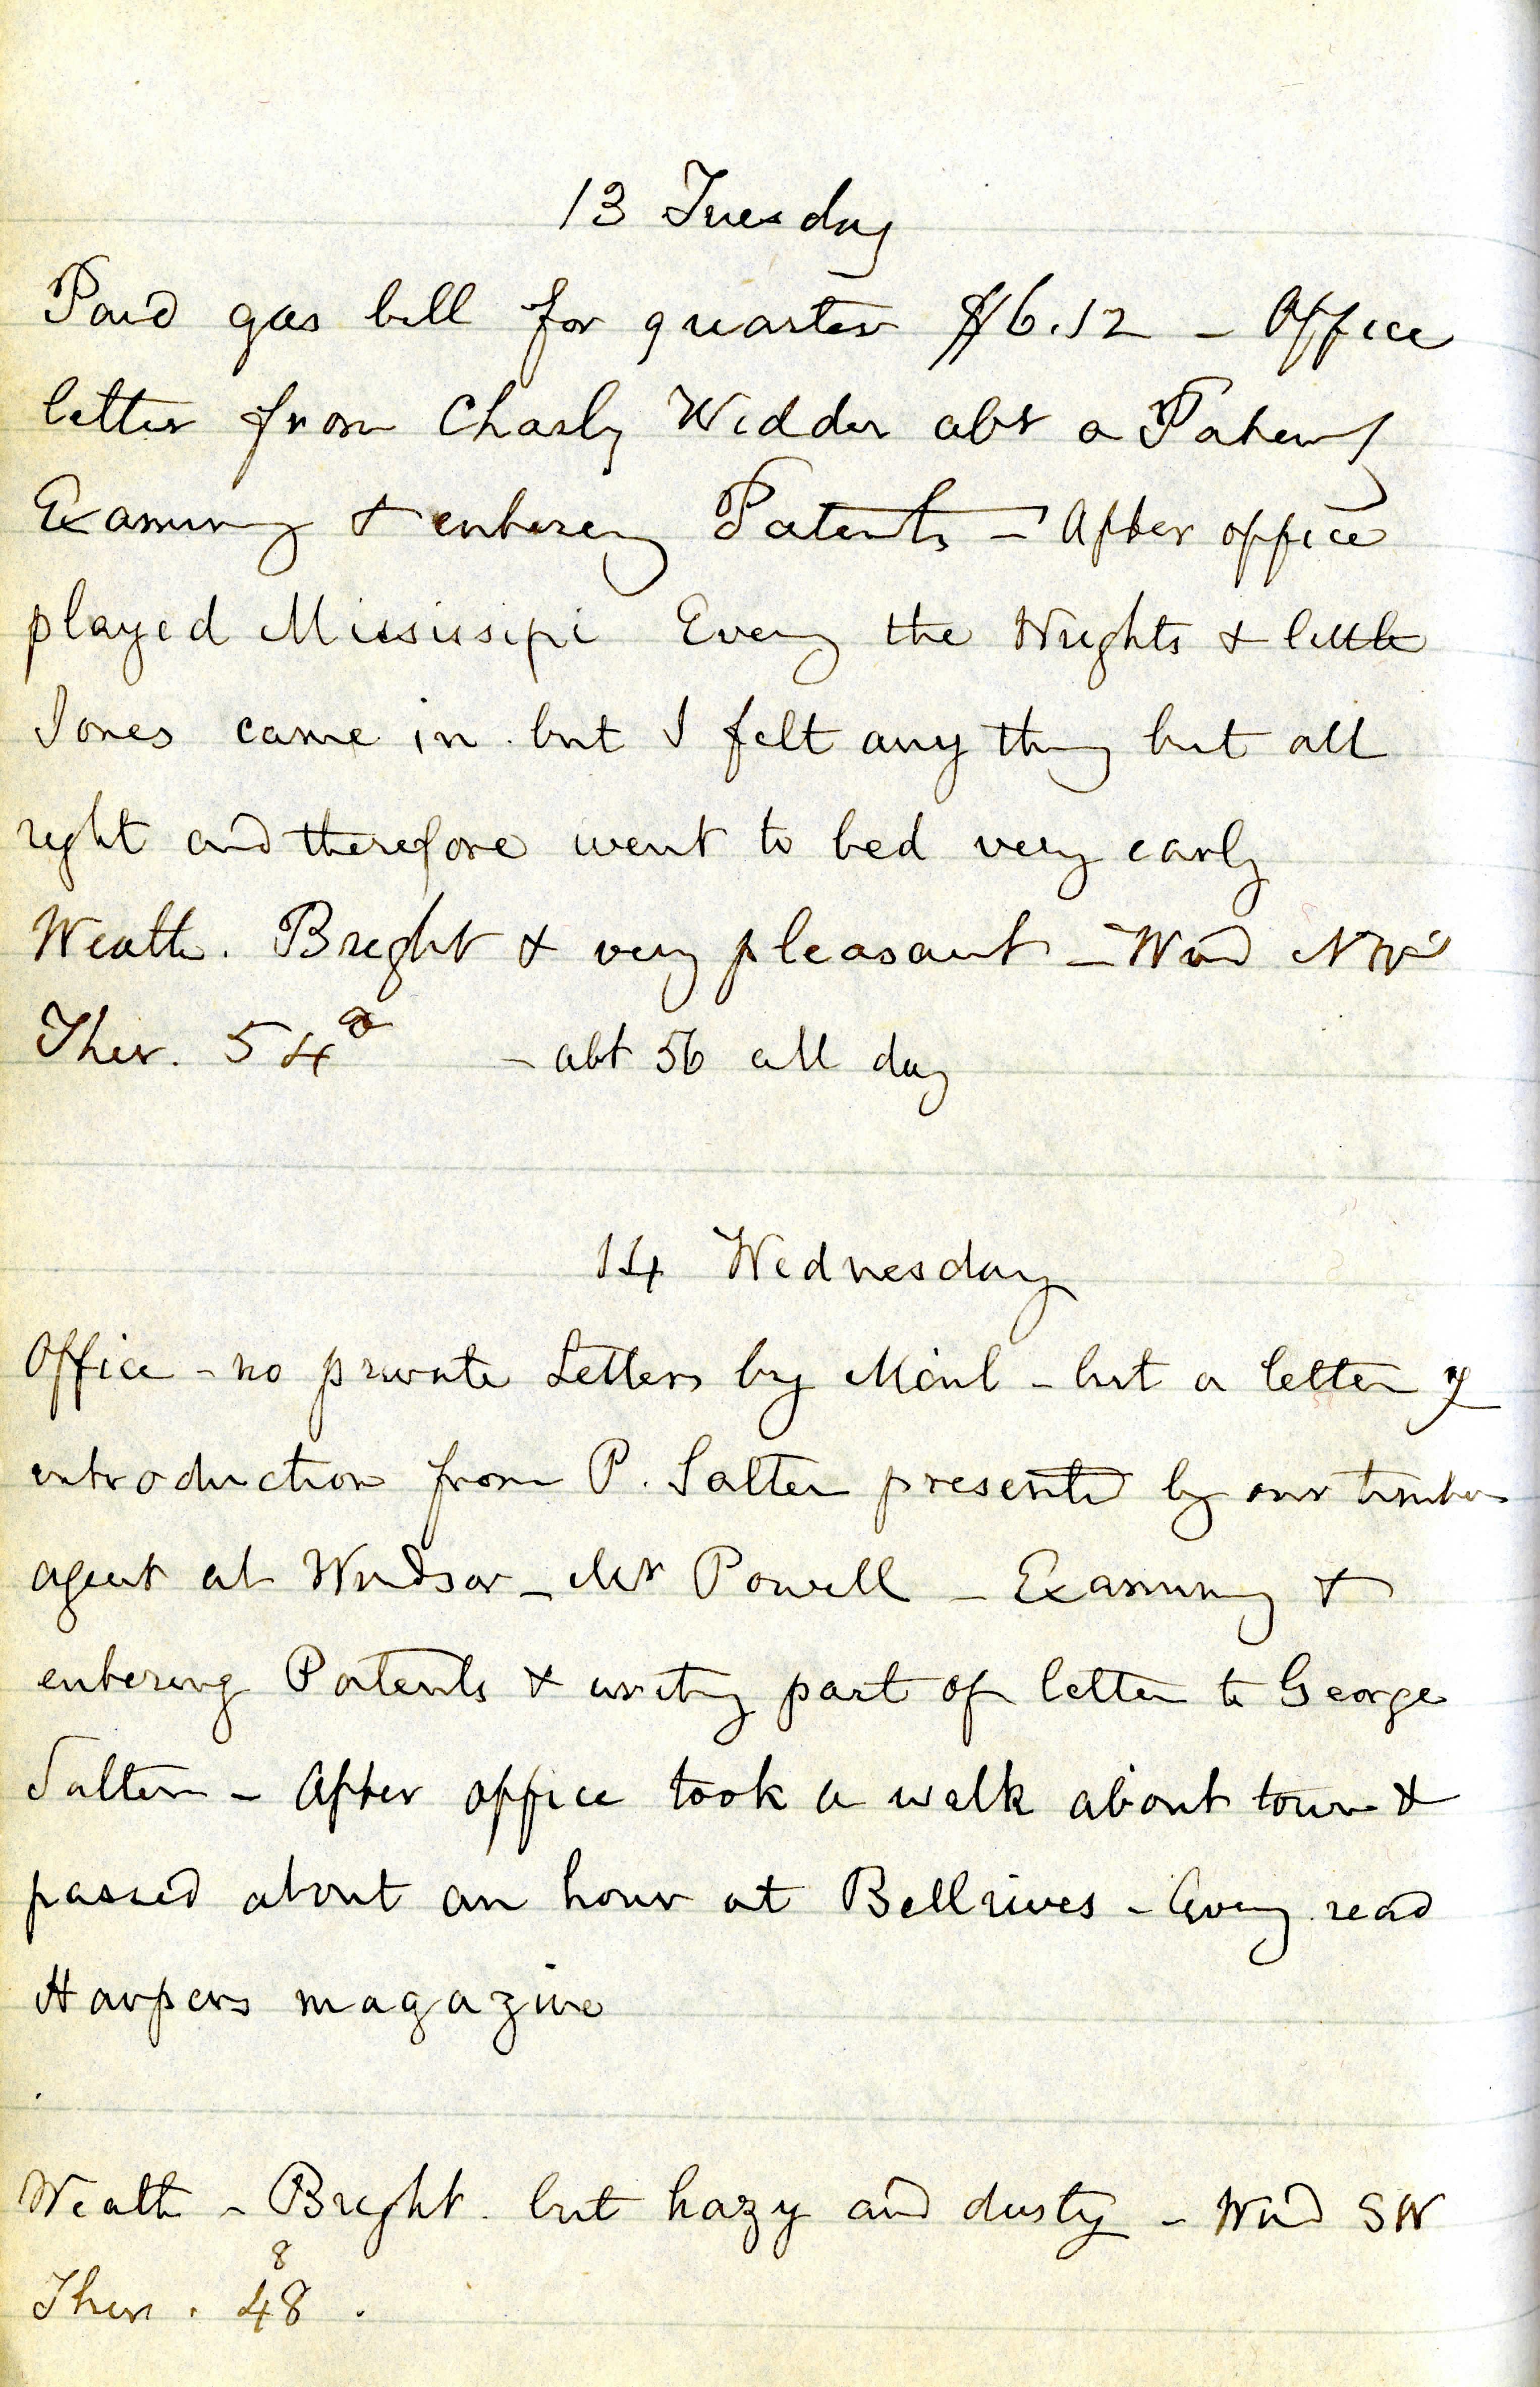 13 Tuesday
Paid gas bill for quarter $6.12 - Office
letter from Charly Widder abt a Patent
Examing & entereng Patents - After office
played Missisipi Eveng the Wrights & little
Jones came in but I felt any thing but all
right and therefore went to bed very early
Weathr. Bright & very pleasant - Wind NW
Ther. 54 8 - abt 56 all day
14 Wednesday
Office - no private Letters by Mail - but a letter of
introduction from P. Salter presented by our timber
agent at Windsor - Mr Powell - Examing &
entering Patents & writing part of letter to George
Salter - After office took a walk about town &
passed about an hour at Bellrives - Eveng read
Harpers magazine
Weathr - Bright but hazy and dusty - Wind SW
8
Ther. 48.